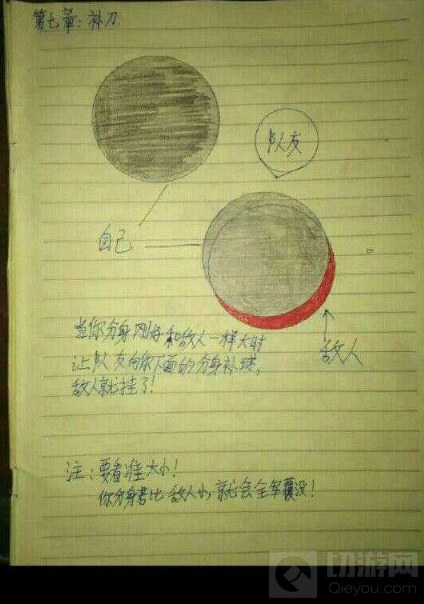 第七章：补刀.
队友
自己
敌人
当你分身刚好和敌人一样大时
让队友向你下面的分身补球，
敌人就挂了！
注：要看准大小！
你分身若比敌人小，就会全军覆没！
切游网
Qieyou.com